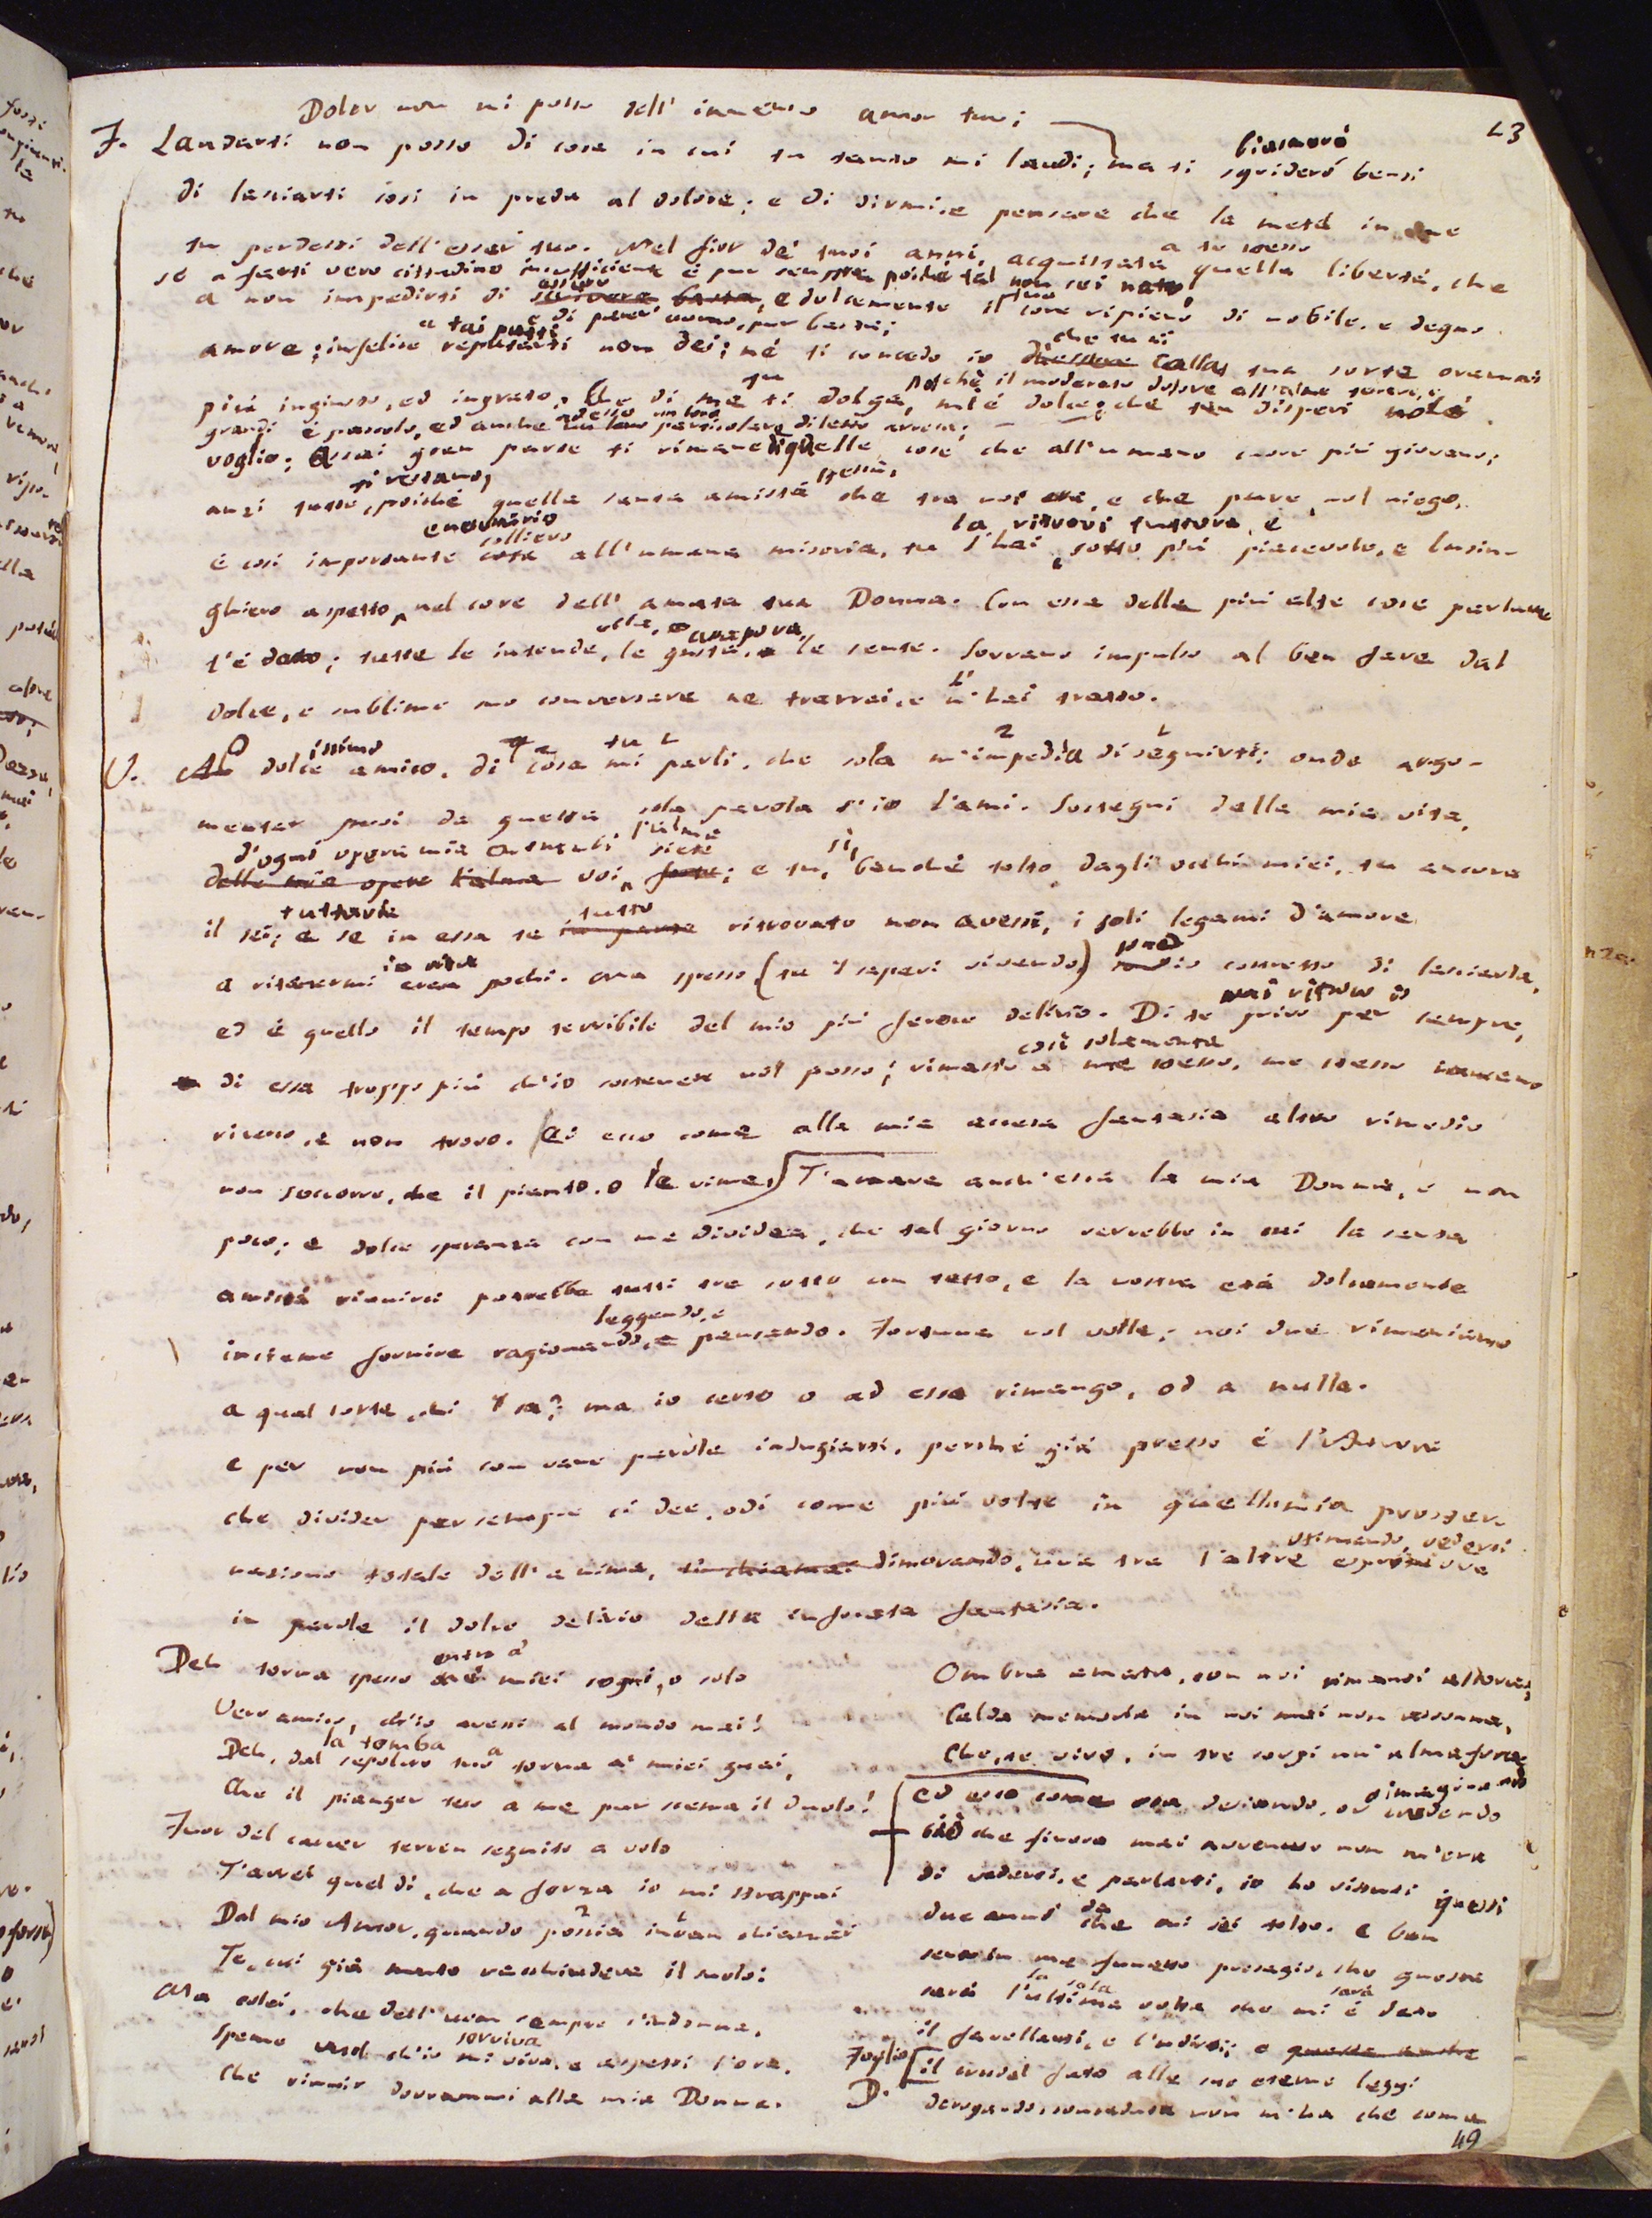 23
Doler non mi posso dell' immenso amor tuo;
F. Laudarti non posso di cosa in cui tu tanto mi laudi; ma ti sgriderò bensì
biasmerò
di lasciarti così in preda al dolore; e di dirmi, e pensare che la metà in me
tu perdessi dell'esser tuo. Nel fior de' tuoi anni, acquistata a te stesso quella libertà, che
se a farti vero cittadino insufficiente è pur sempre poiché tal non sei nato,
a non impedirti di scrivere basta, e dolcemente il core ripieno di nobile, e degno
e di parer uomo, pur basta;
amore; infelice a tal patto reputarti non dei; né ti concedo io che tu di
della tua sorte oramai
più ingiusto, ed ingrato. Che di me tu ti dolga, mi è dolce; che tu disperi nol
poiché il moderato dolore all'alme tenere, e
grandi è pascolo, ed anche un loro particolare diletto arreca;
voglio; assai gran parte ti rimane di quelle cose che all'umano cuore più giovano;
anzi tutte ti restano, poiché quella santa amistà che tra noi era, e che pure, nol niego,
è così importante sollievo all'umana miseria, tu l'hai, sotto più piacevole, e lusin-
la ritrovi tuttora, e
ghiero aspetto, nel core dell' amata tua Donna. Con essa delle più alte cose parlare
t'è dato; tutte le intende, le gusta, le sente. Sovrano impulso al ben fare dal
dolce, e sublime suo conversare ne trarrai, e n'hai tratto.
V. O dolcissimo amico, di cosa tu mi parli, che sola m'impedìa di seguirti; onde argo-
mentar puoi da questa sola parola s'io l'ami. Sostegni della mia vita,
d'ogni opera mia l'alma siete
delle mie opere l'alma voi, foste; e tu, sì, benché tolto dagli occhi miei, tu ancora
il sei; e se in essa te tutto ritrovato non avessi, i soli legami d'amore
tuttavia
a ritenermi in vita eran pochi. Ma spesso (tu 'l sapevi vivendo) son io costretto di lasciarla,
ed è quello il tempo terribile del mio più feroce delirio. Di te privo per sempre,
mai ritrovo io
di essa troppo più ch'io sostener nol posso; rimasto così solamente a me stesso, me stesso
ricerco, e non trovo. Ed ecco come alla mia accesa fantasia altro rimedio
non soccorre, che il pianto, o le rime. T'amava anch'essa la mia Donna, e non
poco; e dolce speranza con me dividea, che tal giorno verrebbe in cui la santa
amistà riunirci potrebbe tutti tre sotto un tetto, e la nostra età dolcemente
insieme fornire ragionando, leggendo, e pensando. Fortuna nol volle; noi due rimaniamo
a qual sorte, chi 'l sa? ma io certo o ad essa rimango, od a nulla.
e per non più con vane parole indugiarti, perché già presso è l'Aurora
che divider per sempre ci dee, odi come più volte in quella mia proster-
nazione totale dell'anima, dimorando, una tra l'altre
in parole il dolce delirio della infocata fantasia.
Deh torna spesso entro a' miei sogni, o solo
Vero amico, ch'io avessi al mondo mai!
Deh, dal sepolcro tuo torna a' miei guai,
la tomba
Che il pianger teco a me pur scema il duolo!
Fuor del carcer terren seguito a volo
T'avrei quel dì, che a forza io mi strappai
Dal mio Amor, quando poscia invan chiamai
Te, cui già racchiudeva il suolo:
Ma colei, che dell'uom sempre s'indonna,
Speme vuol ch'io mi viva, e aspetti l'ora,
sorviva
Che riunir dovrammi alla mia Donna.
Ombra amata, con noi rimanti allora;
Calda memoria in noi mai non assonna,
Che, te vivo, in tre corpi un'alma fora.
ed ecco come ora desiando, od immaginando
ciò che finora mai avvenuto non m'era
di vederti, e parlarti, io ho vissuti questi
due anni da che mi sei tolto. e ben
sento in me funesto presagio, che questa
sarà l'ultima volta che mi è dato
la sola
sarà
il favellarti, e l'udirti; o
Foglio il crudel fato alle sue eterne leggi
D. derogando, conceduto non m'ha che come
49